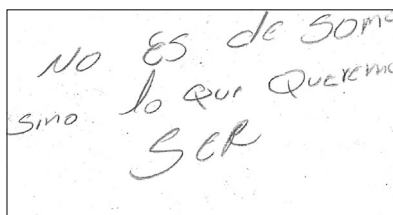 NO ES de Som
sino lo que Querem
SER